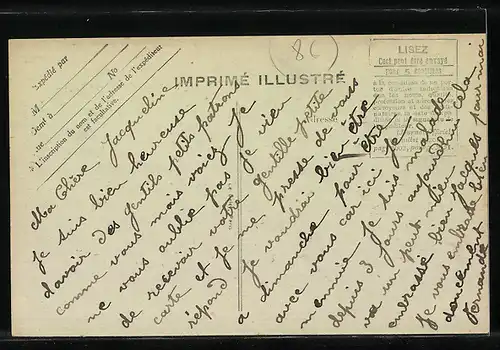 Expédié par
M
No
Rue
à
L'inscription du nom et de l'adresse de l'expéditeur
est facultative.
IMPRIMÉ ILLUSTRÉ
86
LISEZ
Ceci peut être envoyé
pour 5 centimes
Adresse
Ma Chère Jacqueline
je suis bien heureuse
d'avoir des gentils petits patrons
comme vous mais voyez je
ne vous oublie pas je vien
de recevoir votre gentille petite
carte et je me presse de vous
répond je voudrai bien être
a dimanche pour être
avec vous car ici je
m'ennuie je suis malade
depuis 3 jours aujourd'hui cela
va un peut mieu
embrasse bien Jacques pour moi
je vous embrasse bien
doucement
Fernande